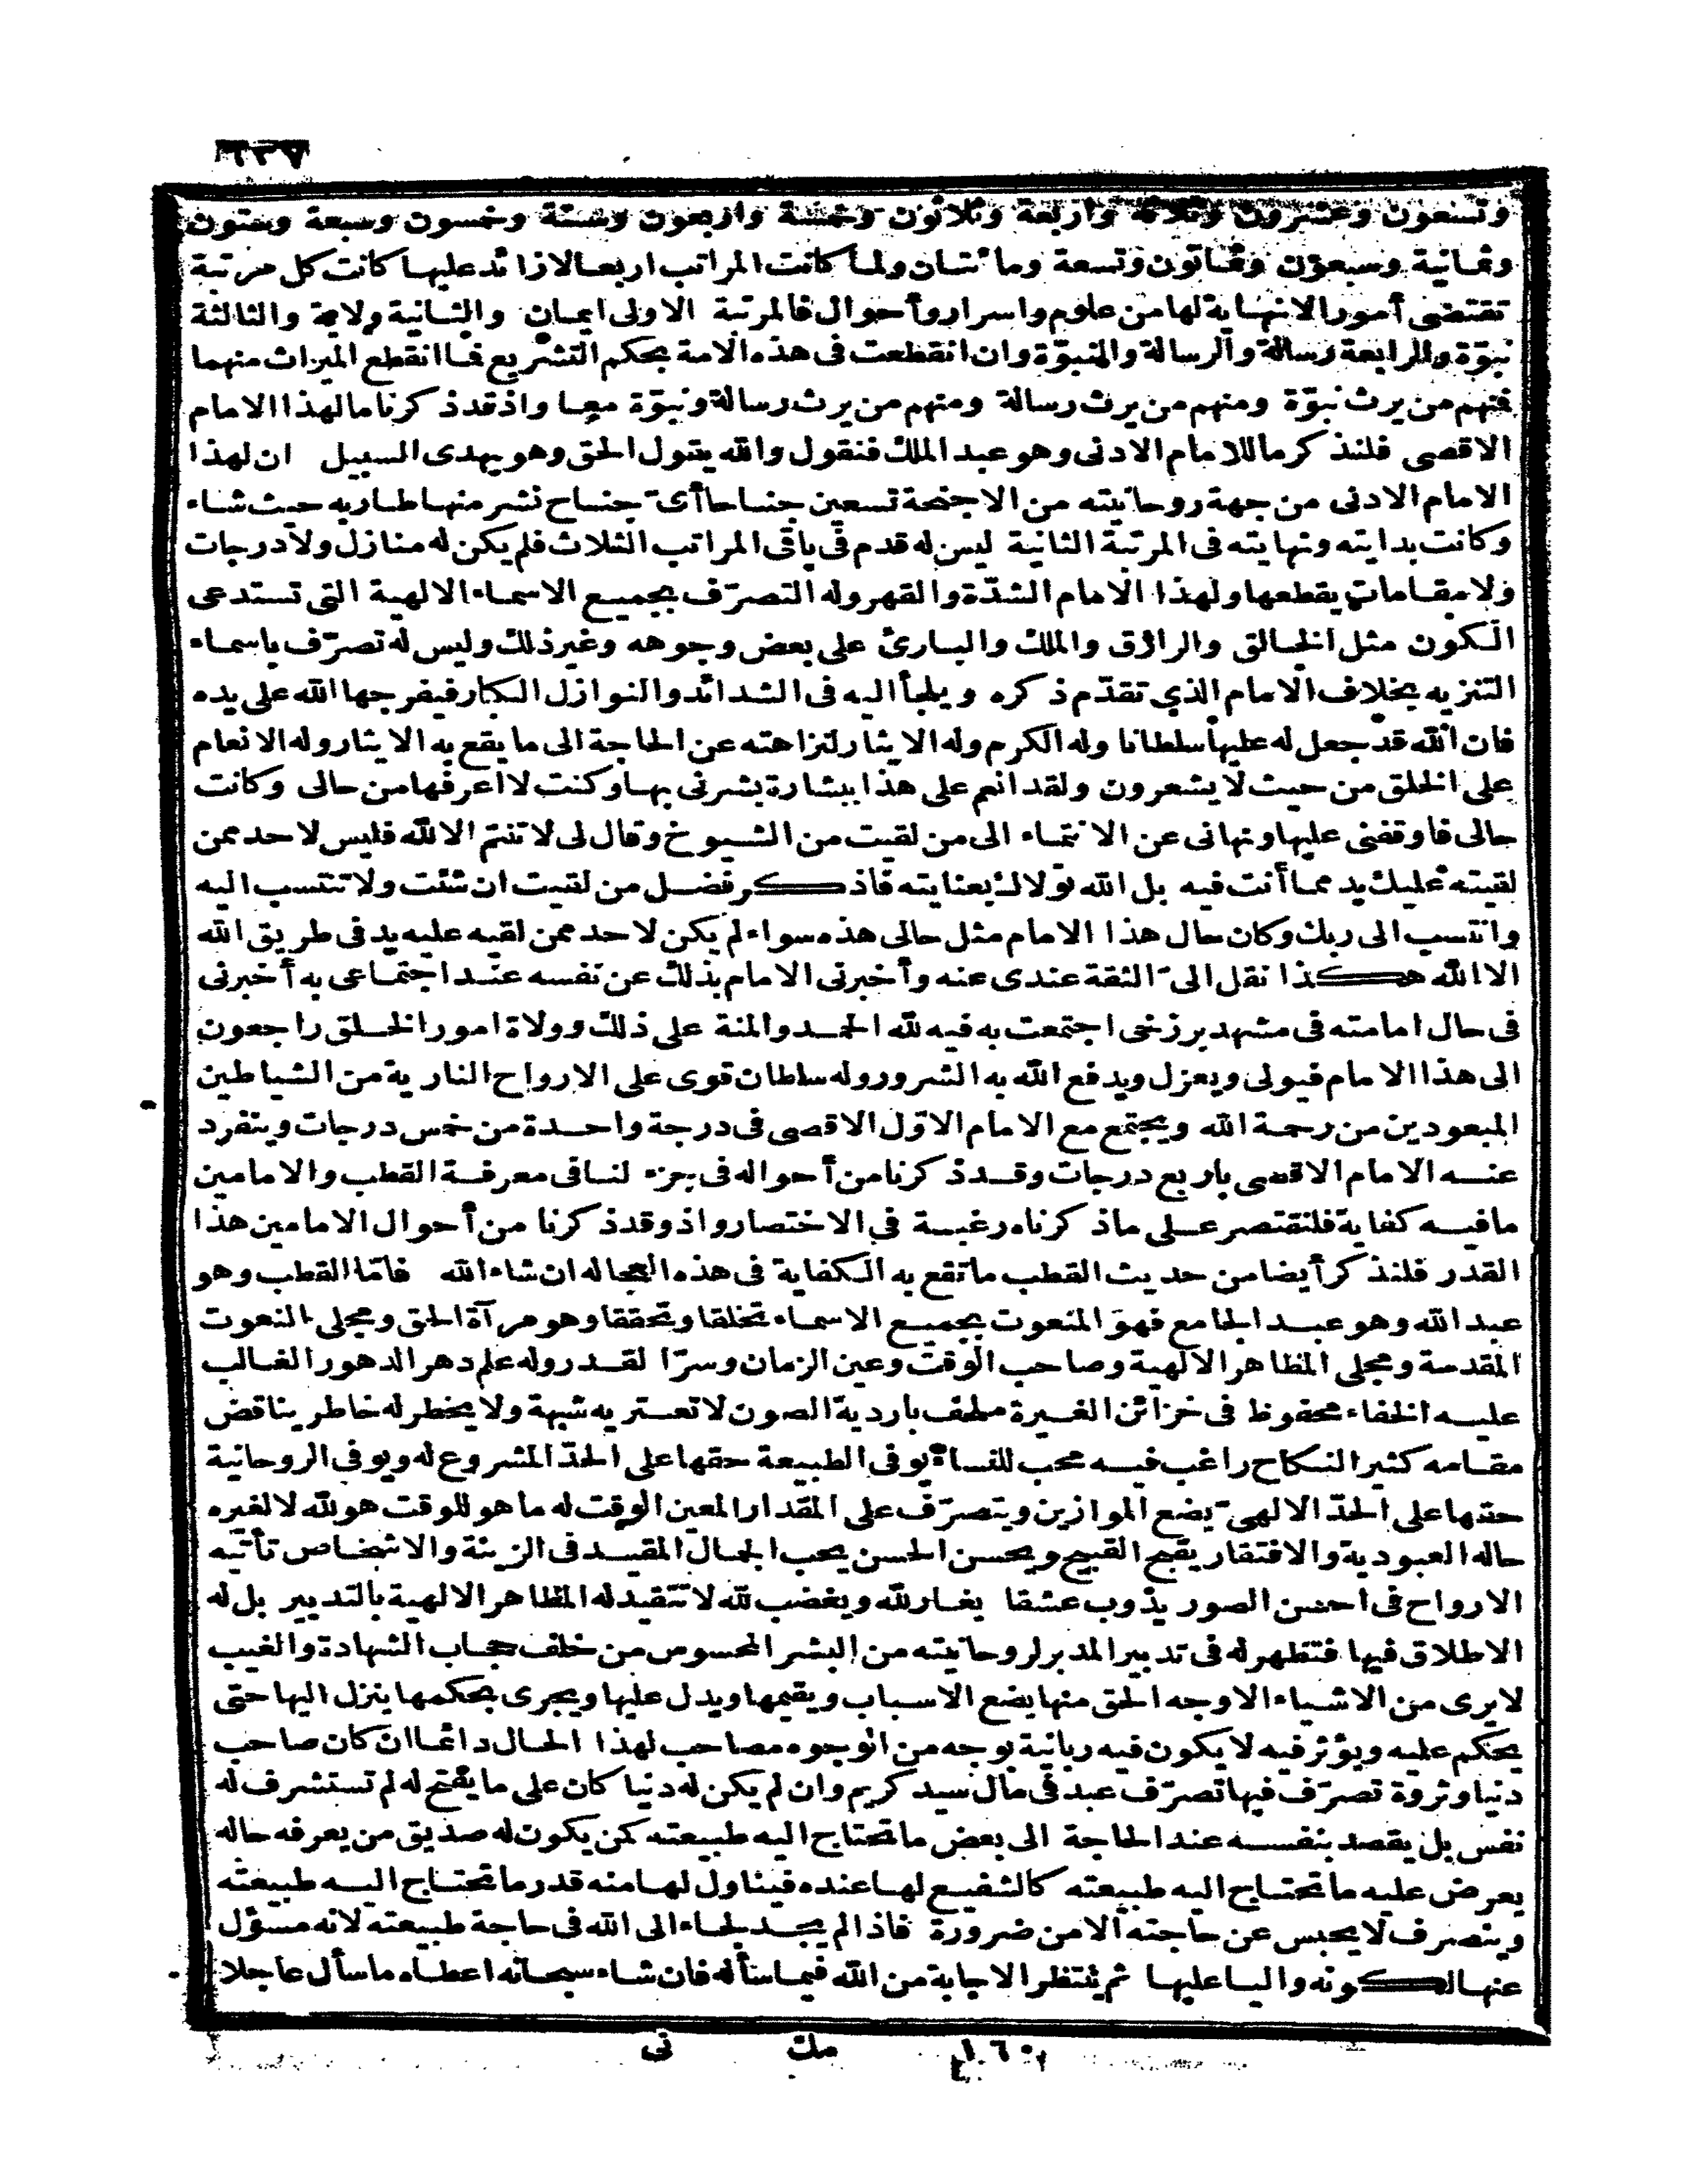 ٦٣٧
وتسعون وعشرون وثلاثة واربعة وثلاثون وخمسة واربعون وستة وخمسون وسبعة وستون
وثمانية وسبعون وثمانون وتسعة ومائتان ولما كانت المراتب اربعا لا زائد عليها كانت كل مرتبة
تقتضى أمورا لا نهاية لها من علوم واسرار وأحوال فالمرتبة الاولى ايمان والثانية ولاية والثالثة
نبوّة والرابعة رسالة والرسالة والنبوّة وان انقطعت فى هذه الامة بحكم التشريع فما انقطع الميراث منهما
فمنهم من يرث نبوّة ومنهم من يرث رسالة ومنهم من يرث رسالة ونبوّة معا واذ قد ذكرنا ما لهذا الامام
الاقصى فلنذكر ما للامام الادنى وهو عبد الملك فنقول والله يقول الحق وهو يهدى السبيل ان لهذا
الامام الادنى من جهة روحانيته من الاجنحة تسعين جناحا أىّ جناح نشر منها طار به حيث شاء
وكانت بدايته ونهايته فى المرتبة الثانية ليس له قدم فى باقى المراتب الثلاث فلم يكن له منازل ولا درجات
ولا مقامات يقطعها ولهذا الامام الشدّة والقهر وله التصرّف بجميع الاسماء الالهية التى تستدعى
الكون مثل الخالق والرازق والملك والبارئ على بعض وجوهه وغير ذلك وليس له تصرّف باسماء
التنزيه بخلاف الامام الذى تقدّم ذكره ويلجأ اليه فى الشدائد والنوازل الكبار فيفرجها الله على يده
فان الله قد جعل له عليها سلطانا وله الكرم وله الايثار لنزاهته عن الحاجة الى ما يقع به الايثار وله الانعام
على الخلق من حيث لا يشعرون ولقد انعم على هذا ببشارة بشرنى بها وكنت لا اعرفها من حالى وكانت
حالى فاوقفنى عليها ونهانى عن الانتماء الى من لقيت من الشيوخ وقال لى لا تنتم الا لله فليس لاحد ممن
لقيته عليك يد مما أنت فيه بل الله تولاك بعنايته فاذكر فضل من لقيت ان شئت ولا تنتسب اليه
وانتسب الى ربك وكان حال هذا الامام مثل حالى هذه سواء لم يكن لاحد ممن لقيه عليه يد فى طريق الله
الا الله هكذا نقل الىّ الثقة عندى عنه وأخبرنى الامام بذلك عن نفسه عند اجتماعى به أخبرنى
فى حال امامته فى مشهد برزخى اجتمعت به فيه لله الحمد والمنة على ذلك وولاة امور الخلق راجعون
الى هذا الامام فيولى ويعزل ويدفع الله به الشرور وله سلطان قوى على الارواح النارية من الشياطين
المبعودين من رحمة الله ويجتمع مع الامام الاوّل الاقصى فى درجة واحدة من خمس درجات وينفرد
عنه الامام الاقصى باربع درجات وقد ذكرنا من أحواله فى جزء لنا فى معرفة القطب والامامين
ما فيه كفاية فلنقتصر على ما ذكرناه رغبة فى الاختصار واذ وقد ذكرنا من أحوال الامامين هذا
القدر فلنذكر أيضا من حديث القطب ما تقع به الكفاية فى هذه العجالة ان شاء الله فامّا القطب وهو
عبد الله وهو عبد الجامع فهو المنعوت بجميع الاسماء تخلقا وتحققا وهو مرآة الحق ومجلى النعوت
المقدسة ومجلى المظاهر الالهية وصاحب الوقت وعين الزمان وسرّ القدر وله علم دهر الدهور الغالب
عليه الخفاء محفوظ فى خزائن الغيرة ملتحف باردية الصون لا تعتريه شبهة ولا يخطر له خاطر يناقض
مقامه كثير النكاح راغب فيه محب للنساء يوفى الطبيعة حقها على الحدّ المشروع له ويوفى الروحانية
حقها على الحدّ الالهىّ يضع الموازين ويتصرّف على المقدار المعين الوقت له ما هو للوقت هو لله لا لغيره
حاله العبودية والافتقار يقبح القبيح ويحسن الحسن يحب الجمال المقيد فى الزينة والاشخاص تأتيه
الارواح فى احسن الصور يذوب عشقا يغار لله ويغضب لله لا تتقيد له المظاهر الالهية بالتدبير بل له
الاطلاق فيها فتظهر له فى تدبير المدبر لروحانيته من البشر المحسوس من خلف حجاب الشهادة والغيب
لا يرى من الاشياء الا وجه الحق منها يضع الاسباب ويقيمها ويدل عليها ويجرى بحكمها ينزل اليها حتى
يحكم عليه ويؤثر فيه لا يكون فيه ربانية بوجه من الوجوه مصاحب لهذا الحال دائما ان كان صاحب
دنيا وثروة تصرّف فيها تصرّف عبد فى مال سيد كريم وان لم يكن له دنيا كان على ما يفتح له لم تستشرف له
نفس بل يقصد بنفسه عند الحاجة الى بعض ما تحتاج اليه طبيعته كن يكون له صديق من يعرفه حاله
يعرض عليه ما تحتاج اليه طبيعته كالشفيع لها عنده فيتناول لها منه قدر ما تحتاج اليه طبيعته
وينصرف لا يحبس عن حاجته الا من ضرورة فاذا لم يجد لجاء الى الله فى حاجة طبيعته لانه مسؤل
عنها لكونه واليا عليها ثم ينتظر الاجابة من الله فيما سأله فان شاء سبحانه اعطاه ما سأل عاجلا
١٦٠ مك نى